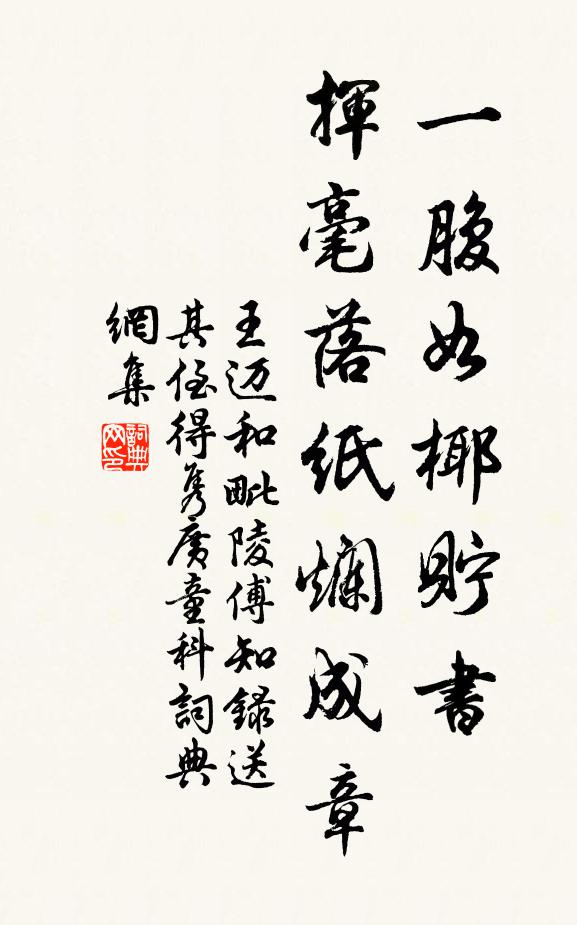 一腹如椰貯書
揮毫落紙爛成章
王迈和毗陵傅知録送
其侄得隽廣童科詞典
網集
詞典
网印